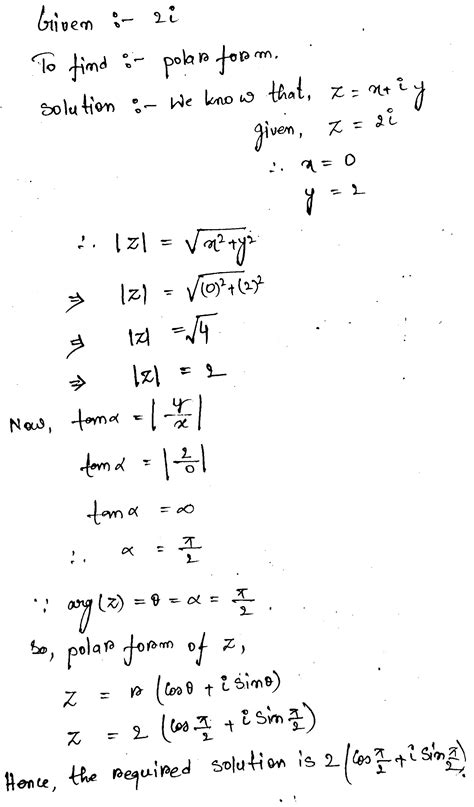 Given :- 2i
To find :- polar form.
Solution :- We know that, z = x + iy
given, z = 2i
∴ x = 0
y = 2
∴ |z| = √(x²+y²)
⇒ |z| = √((0)²+(2)²)
⇒ |z| = √4
⇒ |z| = 2
Now, tanα = |y/x|
tanα = |2/0|
tanα = ∞
∴ α = π/2
∵ arg(z) = θ = α = π/2.
So, polar form of z,
z = r (cosθ + i sinθ)
z = 2 (cos π/2 + i sin π/2)
Hence, the required solution is 2 (cos π/2 + i sin π/2).